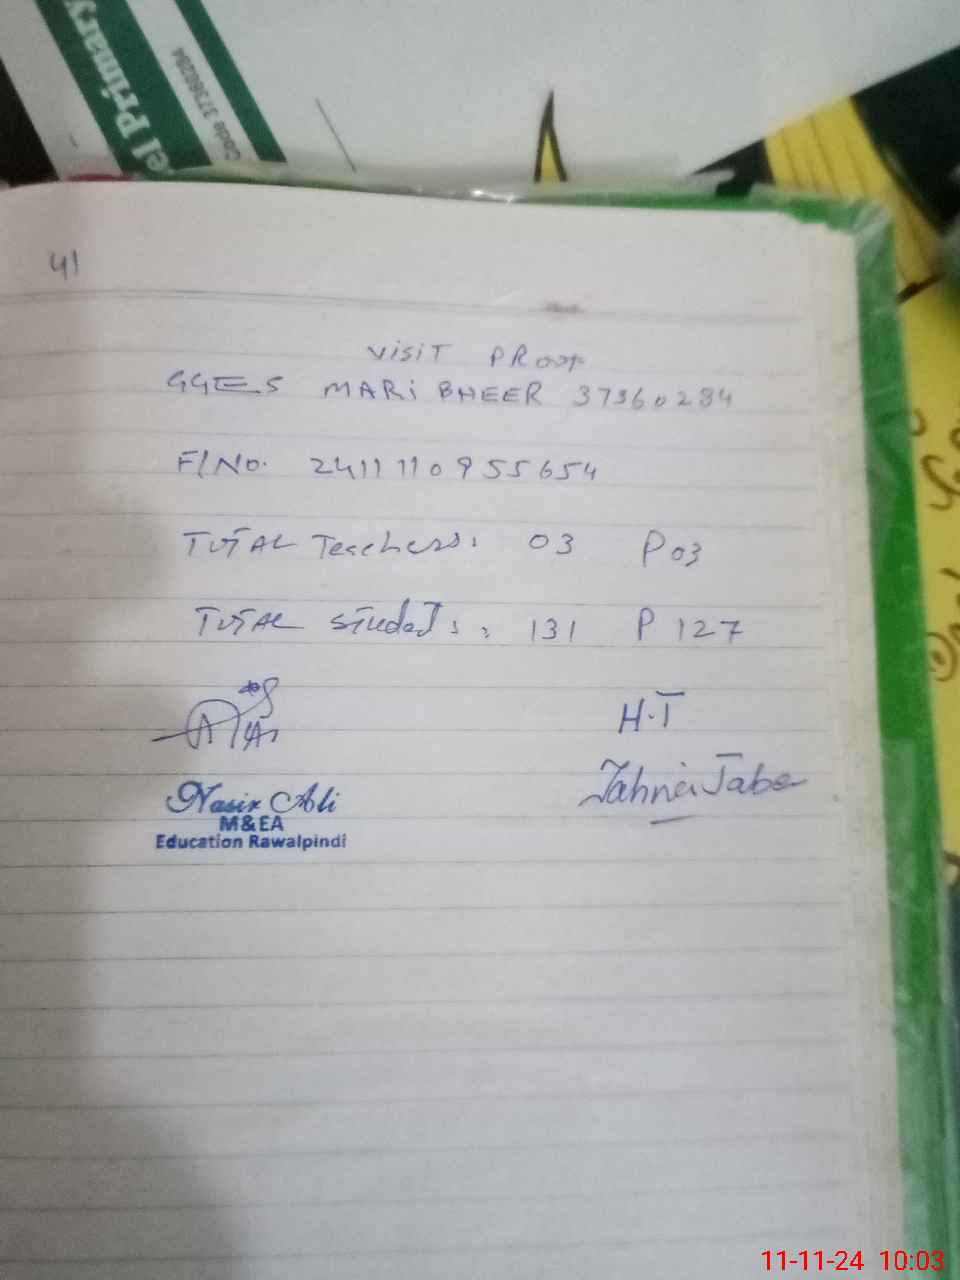 el Primary
Code 37360284
41
VISIT PROOF
GGES MARI BHEER 37360284
F/No. 2411110955654
TOTAL Teachers: 03 P 03
TOTAL Students: 131 P 127
H.T
Nasir Ali
M&EA
Education Rawalpindi
11-11-24 10:03